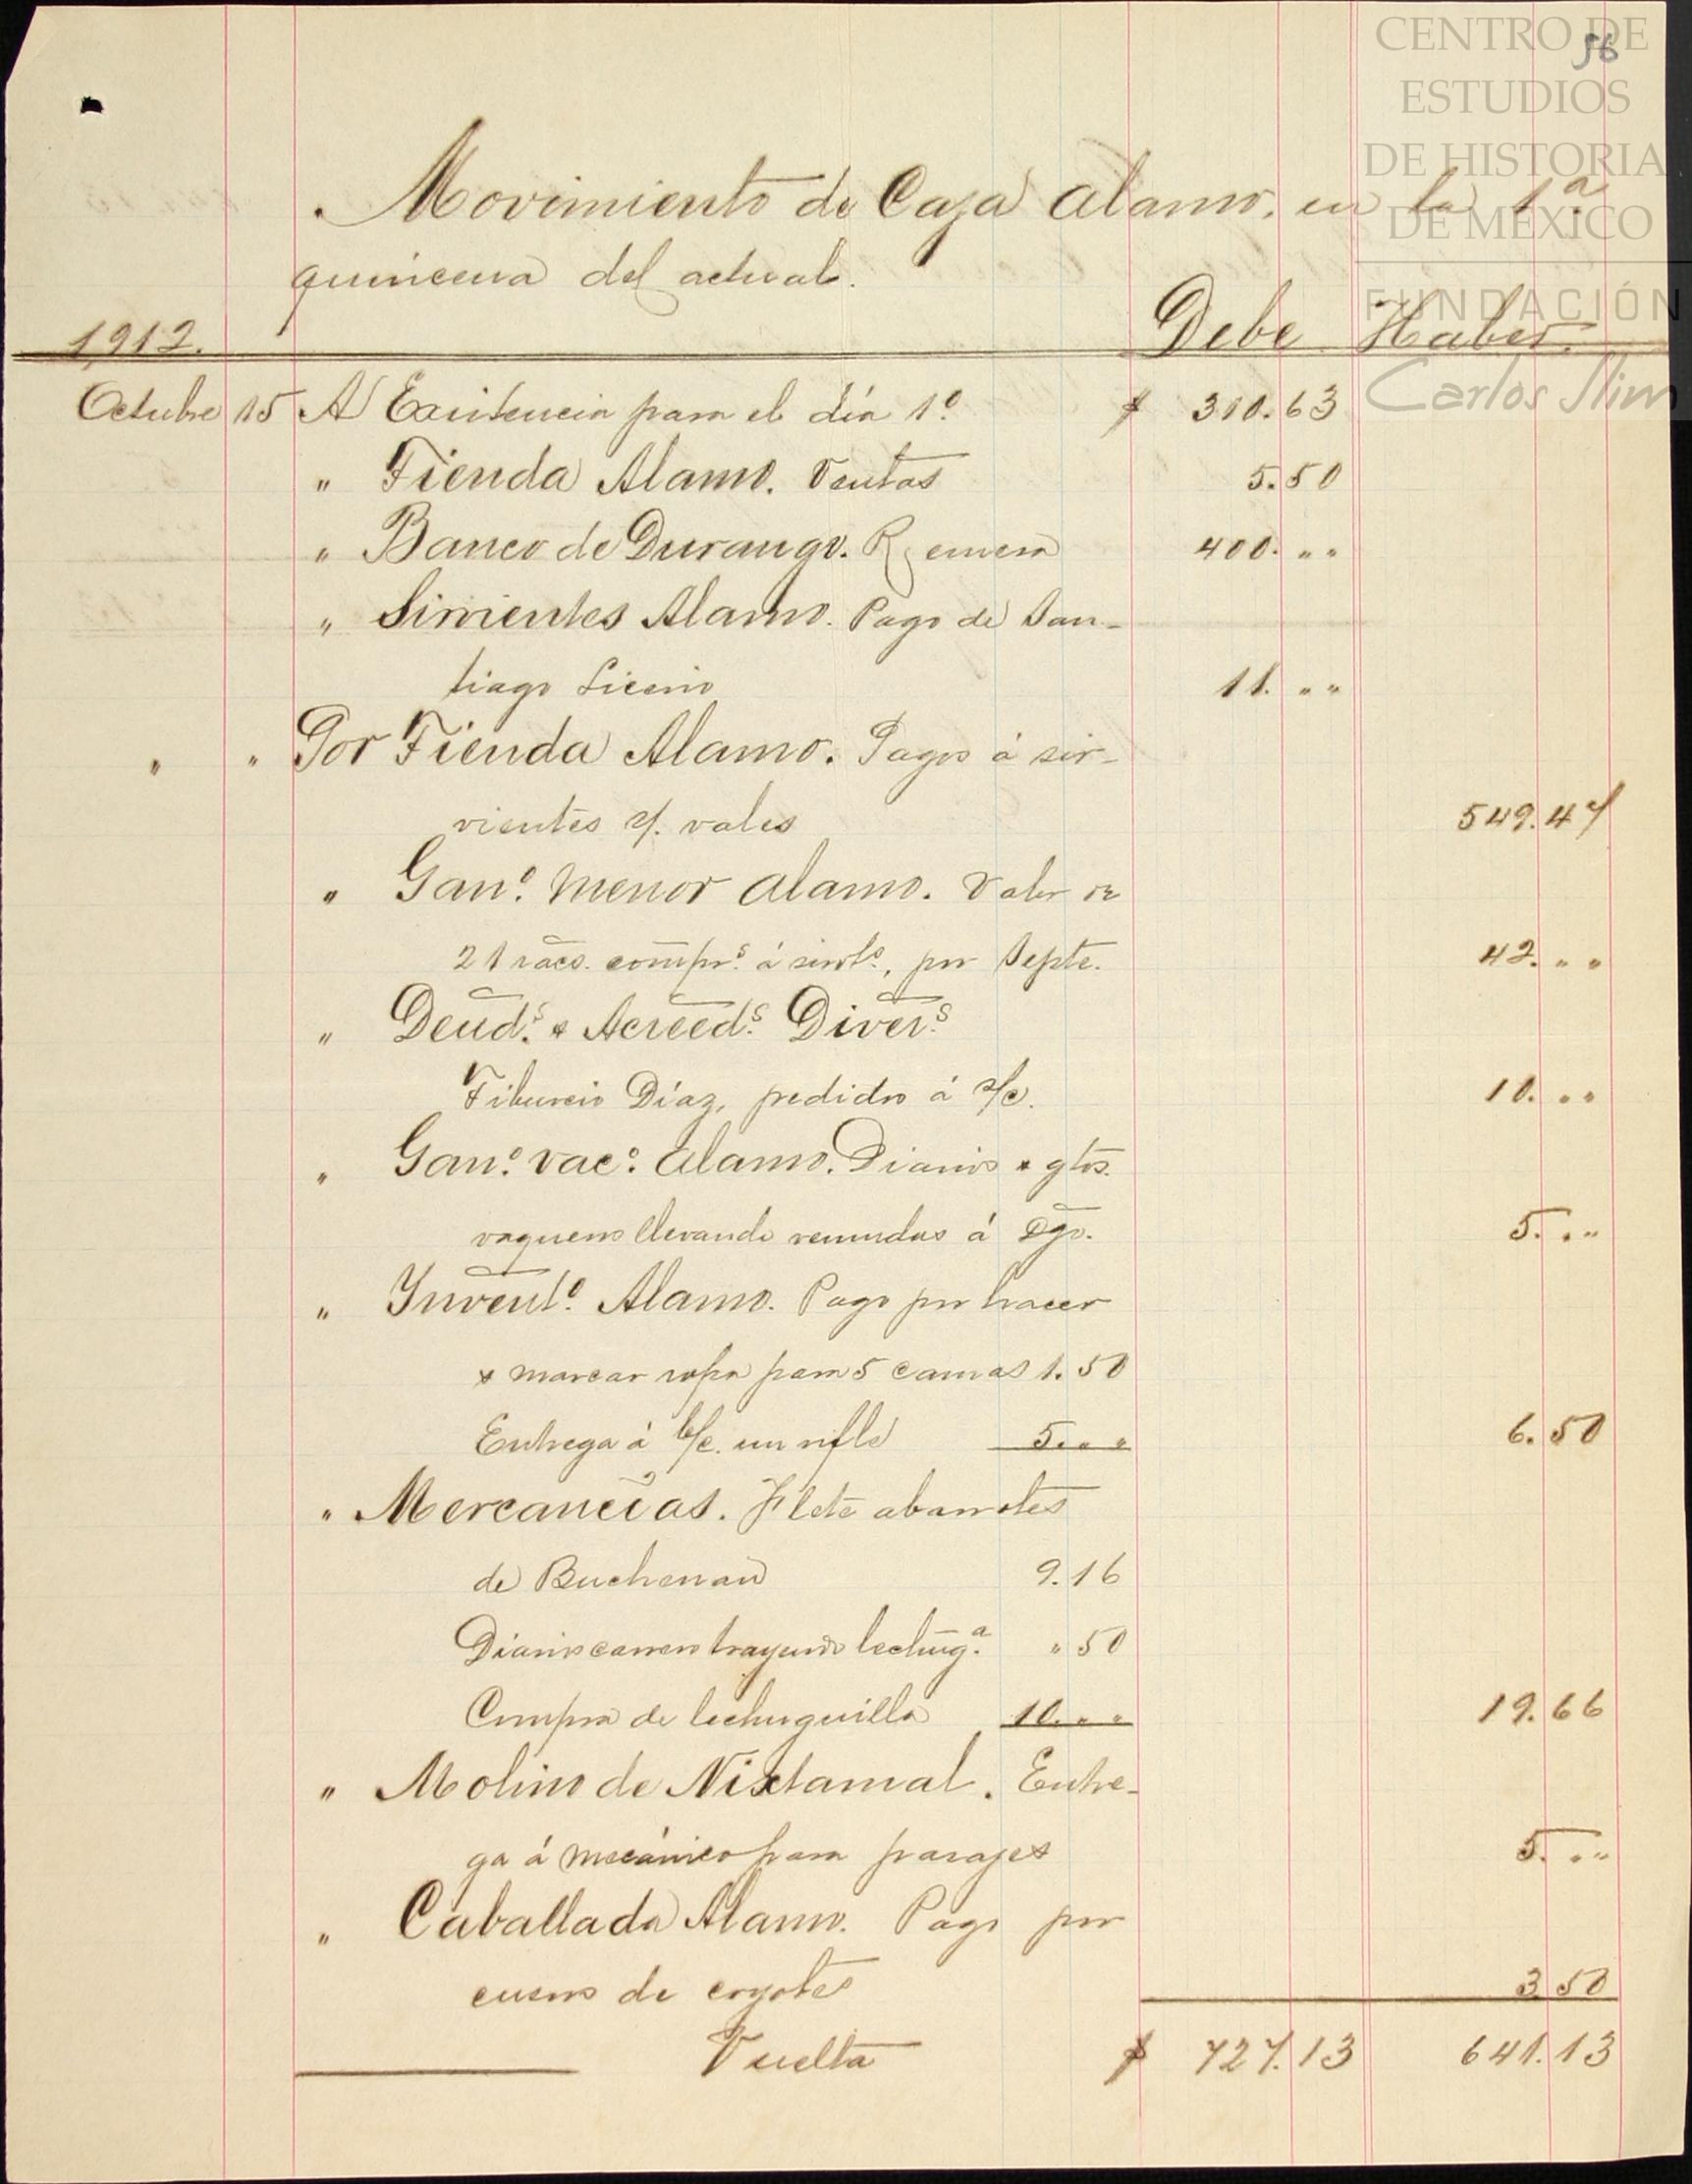 56
CENTRO DE
ESTUDIOS
DE HISTORIA
DE MÉXICO
FUNDACIÓN
Carlos Slim
Movimiento de Caja Alamo, en la 1ª
quincena del actual.
1912. Debe Haber
Octubre 15 A Existencia para el día 1º $ 310.63
" Tienda Alamo. Ventas 5.50
" Banco de Durango. Remesa 400. " "
" Simientes Alamo. Pago de San-
tiago Licerio 11. " "
" " Por Tienda Alamo. Pagos á sir-
vientes s/. vales 549.47
" Ganº. menor Alamo. Valor de
21 racs. comprs. á sirvts., por Septe. 42. " "
" Deuds. & Acreeds. Divers.
Tiburcio Díaz, pedido á s/c. 10. " "
" Ganº. vacº. Alamo. Diarios & gtos.
vaqueros llevando remudas á Dgo. 5. " "
" Inventº. Alamo. Pago por hacer
& marcar ropa para 5 camas 1.50
Entrega á b/c. un rifle 5. " " 6.50
" Mercancías. Flete abarrotes
de Buchenau 9.16
Diario carrero trayendo lechugª. " 50
Compra de lechuguilla 10. " " 19.66
" Molino de Nixtamal. Entre-
ga á mecánico para pasajes 5. " "
" Caballada Alamo. Pago por
cueros de coyotes 3 50
Vuelta $ 727.13 641.13